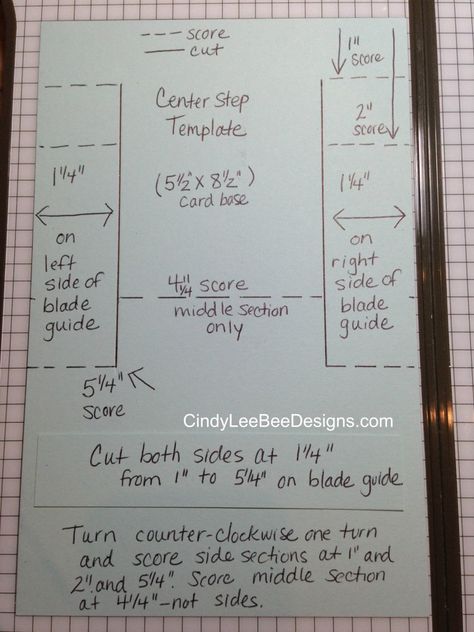 --- score
— cut
1"
score
Center Step
Template
2"
score
1 1/4"
(5 1/2" x 8 1/2")
card base
1 1/4"
on
left
side of
blade
guide
on
right
side of
blade
guide
4 1/4" score
middle section
only
5 1/4"
score
CindyLeeBeeDesigns.com
Cut both sides at 1 1/4"
from 1" to 5 1/4" on blade guide
Turn counter-clockwise one turn
and score side sections at 1" and
2" and 5 1/4". Score middle section
at 4 1/4" – not sides.